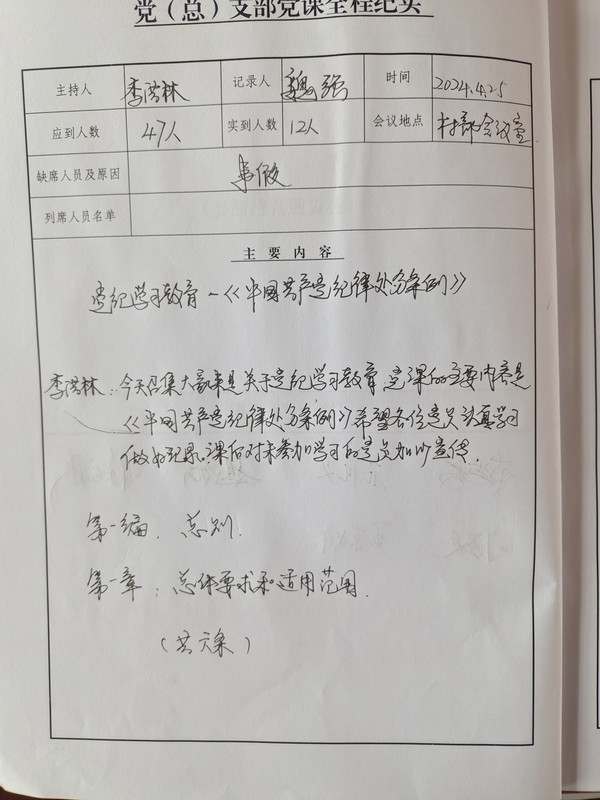 党（总）支部党课全程纪实
主持人 李洪林 记录人 魏强 时间 2024.4.25
应到人数 47人 实到人数 12人 会议地点 村部会议室
缺席人员及原因 事假
列席人员名单
主要内容
党纪学习教育-《中国共产党纪律处分条例》
李洪林：今天召集大家来是关于党纪学习教育 党课的主要内容是
《中国共产党纪律处分条例》希望各位党员认真学习
做好记录。课后对未参加学习的党员加以宣传.
第一编. 总则.
第一章：总体要求和适用范围.
（共六条）